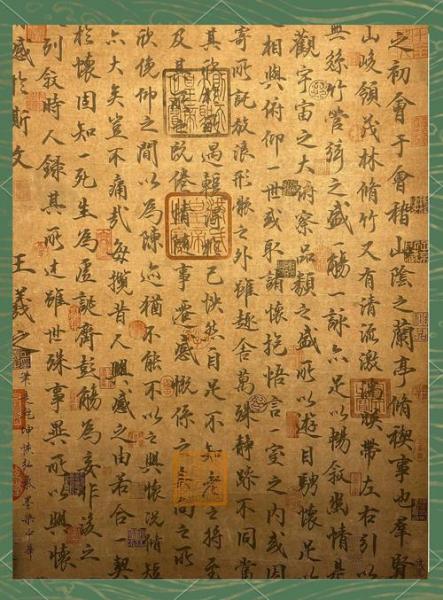 之初會于會稽山陰之蘭亭脩禊事也羣賢
山峻領茂林脩竹又有清流激湍映帶左右引以
無絲竹管弦之盛一觴一詠亦足以暢敘幽情是
觀宇宙之大俯察品類之盛所以遊目騁懷足以
相與俯仰一世或取諸懷抱悟言一室之內或因
寄所託放浪形骸之外雖趣舍萬殊靜躁不同當
其欣遇輒得己怏然自足不知老之將至
及其所之既倦情隨事遷感慨係之之所
欣俛仰之間以為陳迹猶不能不以之興懷況脩短
亦大矣豈不痛哉每攬昔人興感之由若合一契
於懷固知一死生為虛誕齊彭殤為妄作後之
列敘時人錄其所述雖世殊事異所以興懷
感於斯文 王羲之